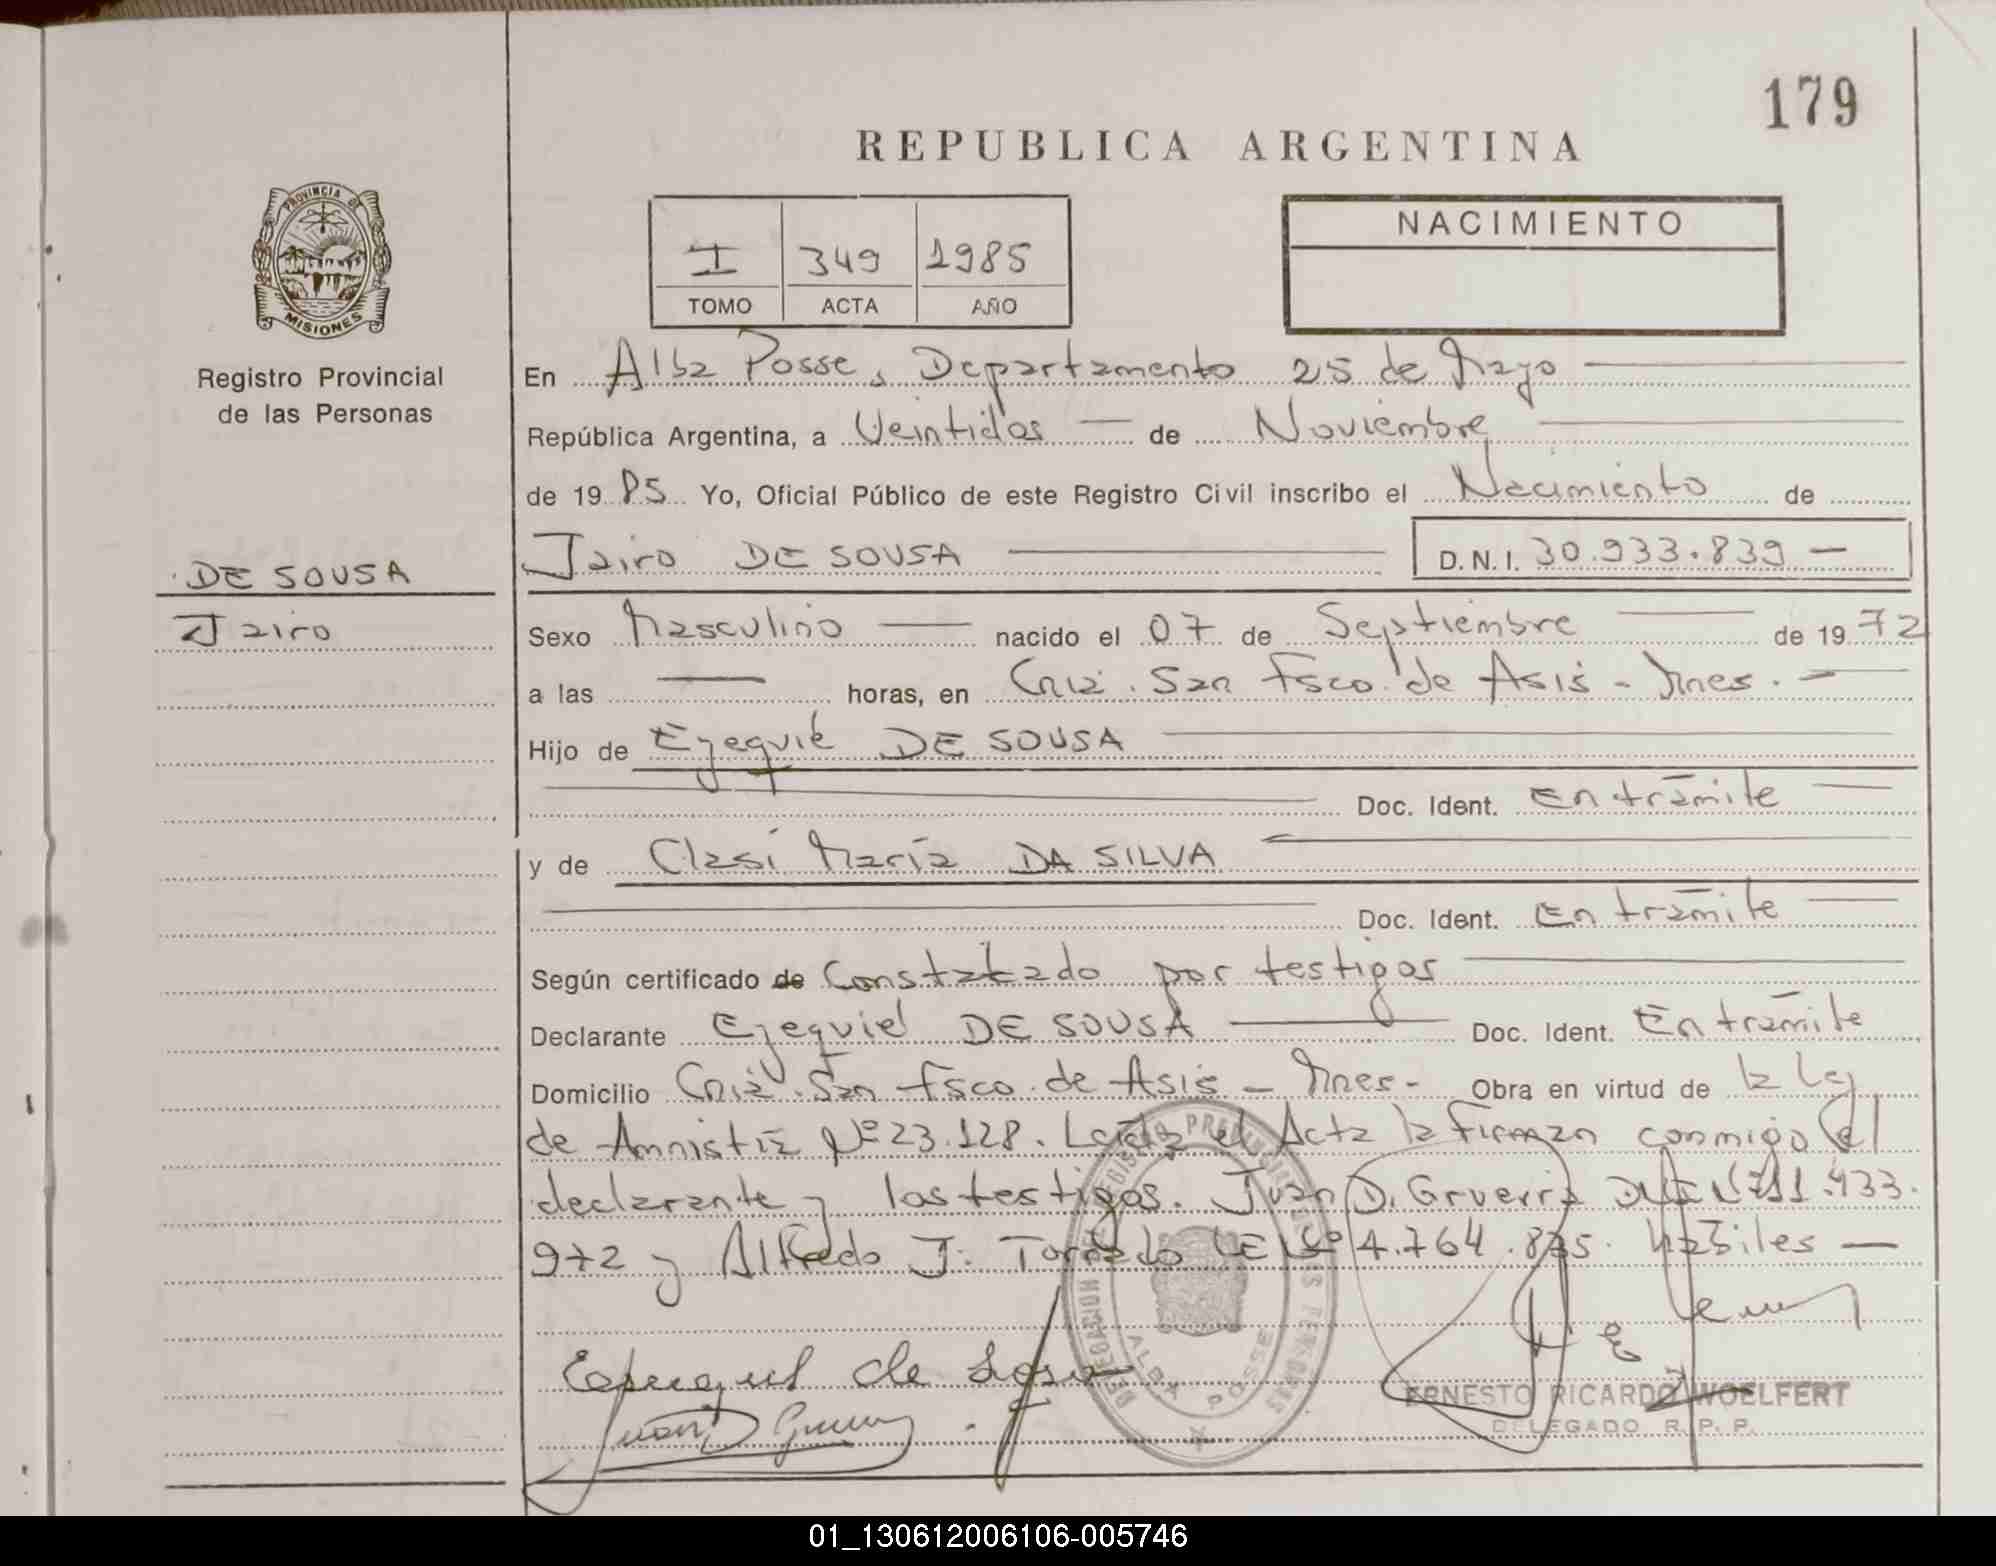 179
REPUBLICA ARGENTINA
PROVINCIA DE
MISIONES
Registro Provincial
de las Personas
I 349 1985
TOMO ACTA AÑO
NACIMIENTO
En Alba Posse, Departamento 25 de Mayo
República Argentina, a Veintidos de Noviembre
de 1985 Yo, Oficial Público de este Registro Civil inscribo el Nacimiento de
Jairo DE SOUSA D.N.I. 30.933.839
DE SOUSA
Jairo
Sexo Masculino nacido el 07 de Septiembre de 1972
a las horas, en Cnia. San Fsco. de Asís - Mnes.
Hijo de Ezequie DE SOUSA
Doc. Ident. En trámite
y de Clasí María DA SILVA
Doc. Ident. En trámite
Según certificado de Constatado por testigos
Declarante Ezequiel DE SOUSA Doc. Ident. En trámite
Domicilio Cnia. San Fsco. de Asís - Mnes- Obra en virtud de la Ley
de Amnistía Nº 23.128. Leída el Acta la Firman conmigo el
declarante y los testigos. Juan D. Gruerri DNI Nº 11.433.
972 y Alfredo J. LE Nº 4.764.835. hábiles
de
Juan D
DELEGACION DEL REGISTRO PROVINCIAL DE LAS PERSONAS
ALBA POSSE
ERNESTO RICARDO WOELFERT
DELEGADO R. P. P.
01_130612006106-005746